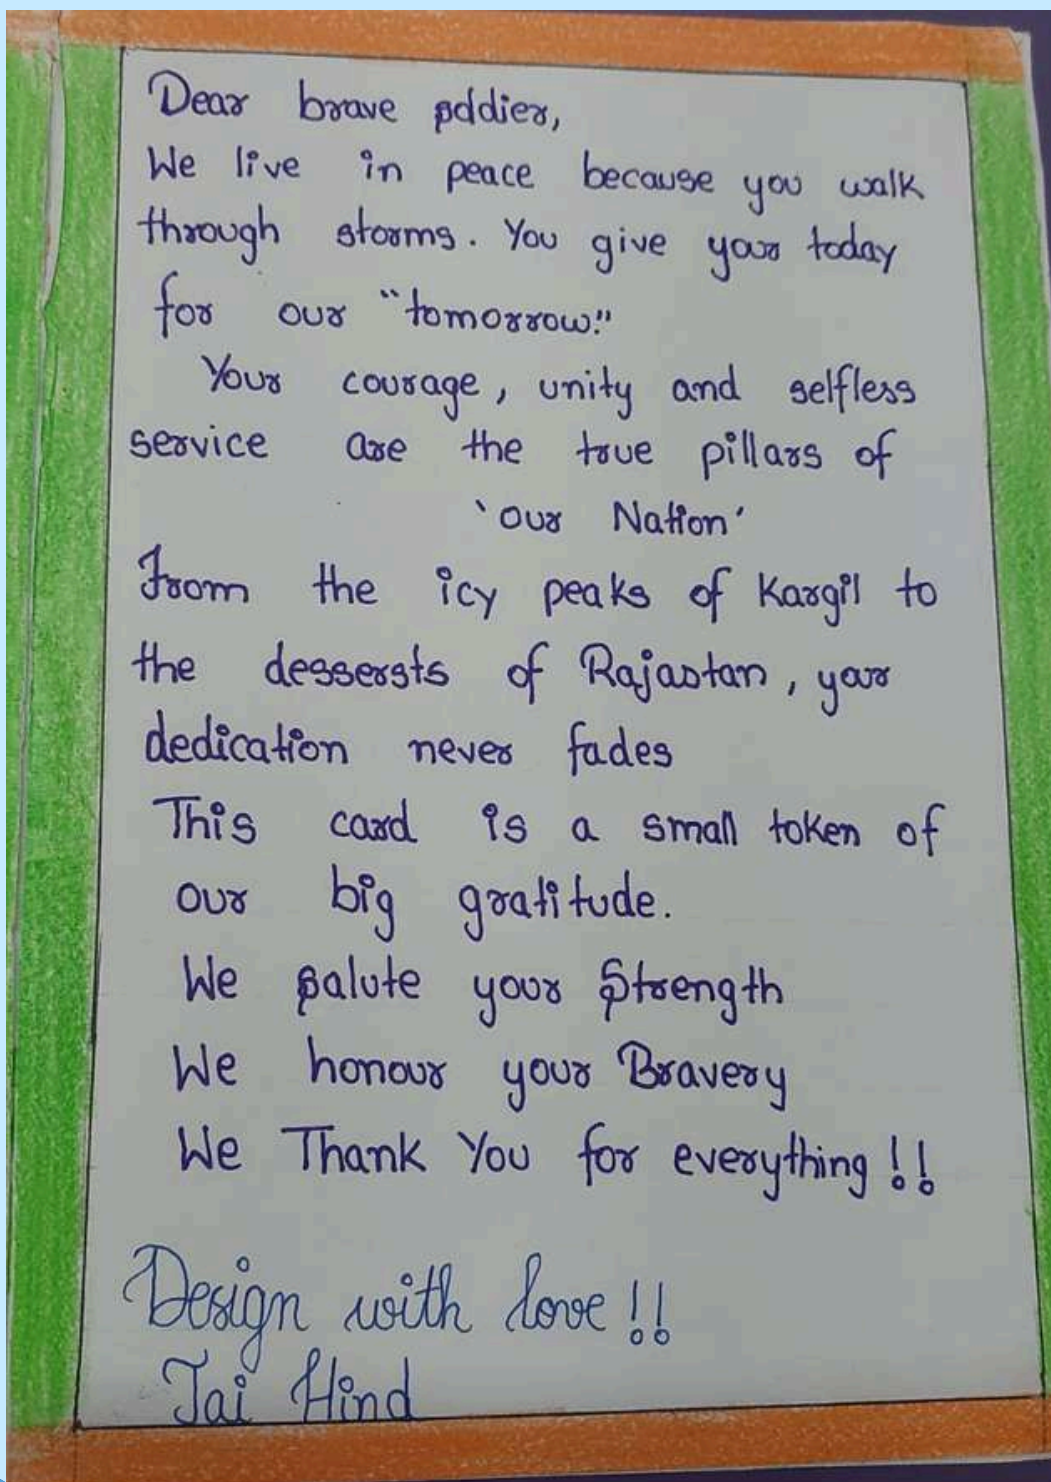 Dear brave soldier,
We live in peace because you walk
through storms. You give your today
for our "tomorrow."
Your courage, unity and selfless
service are the true pillars of
'our Nation'
From the icy peaks of Kargil to
the desserts of Rajastan, your
dedication never fades
This card is a small token of
our big gratitude.
We salute your Strength
We honour your Bravery
We Thank You for everything!!
Design with love!!
Jai Hind